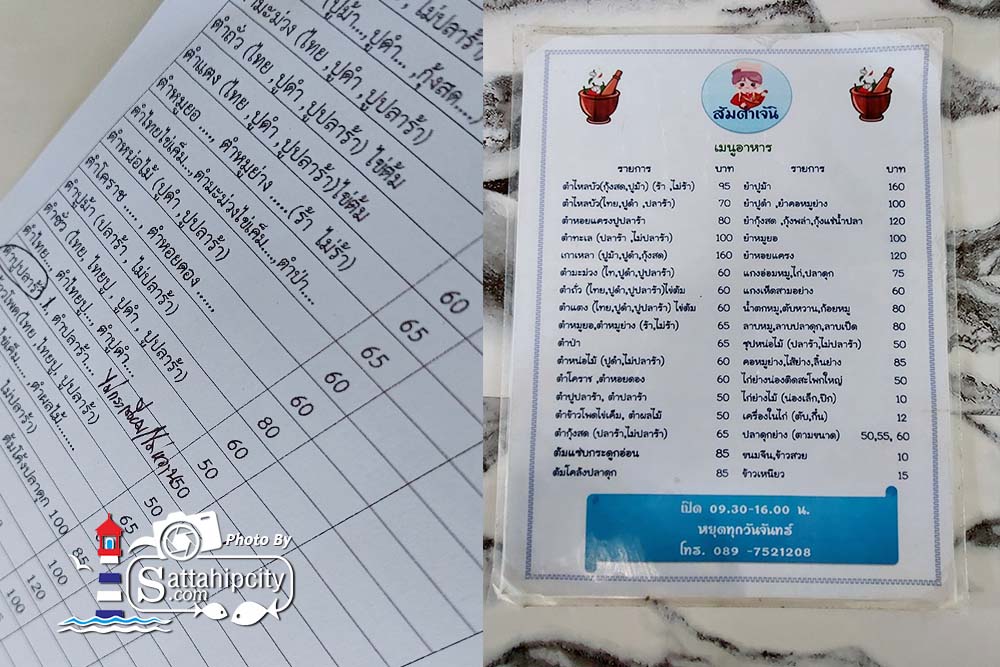 ปูม้า...,ปูดำ...,กุ้งสด...)
ตำมะม่วง (ไทย,ปูดำ,ปูปลาร้า)
ตำถั่ว (ไทย,ปูดำ,ปูปลาร้า) ไข่ต้ม
ตำแตง (ไทย,ปูดำ,ปูปลาร้า)ไข่ต้ม
ตำหมูยอ ...., ตำหมูย่าง .....(ร้า ไม่ร้า) 60
ตำไทยไข่เค็ม...,ตำมะม่วงไข่เค็ม...,ตำป่า.... 65
ตำหน่อไม้ (ปูดำ,ปูปลาร้า) 65
ตำโคราช ...... ตำหอยดอง .... 60
ตำปูม้า (ปลาร้า, ไม่ปลาร้า) 80
ตำถั่ว (ไทย, ไทยปู, ปูดำ, ปูปลาร้า) 60
ตำไทย... ตำไทยปู..., ตำปูดำ... 50
ตำปูปลาร้า 1, ตำปลาร้า... 50
65
50
ต้มโคล้งปลาดุก 100
100
120
100
Photo By
Sattahipcity
.com
ส้มตำเจ้นิ
เมนูอาหาร
รายการ บาท รายการ บาท
ตำไหลบัว(กุ้งสด,ปูม้า) (ร้า ,ไม่ร้า) 95 ยำปูม้า 160
ตำไหลบัว(ไทย,ปูดำ ,ปลาร้า) 70 ยำปูดำ ,ยำคอหมูย่าง 100
ตำหอยแครงปูปลาร้า 80 ยำกุ้งสด ,กุ้งพล่า,กุ้งแช่น้ำปลา 120
ตำทะเล (ปลาร้า ,ไม่ปลาร้า) 100 ยำหมูยอ 100
เกาเหลา (ปูม้า,ปูดำ,กุ้งสด) 160 ยำหอยแครง 120
ตำมะม่วง (ไท,ปูดำ,ปูปลาร้า) 60 แกงอ่อมหมู,ไก่,ปลาดุก 75
ตำถั่ว (ไทย,ปูดำ,ปูปลาร้า)ไข่ต้ม 60 แกงเห็ดสามอย่าง 60
ตำแตง (ไทย,ปูดำ,ปูปลาร้า) ไข่ต้ม 60 น้ำตกหมู,ตับหวาน,ก้อยหมู 80
ตำหมูยอ,ตำหมูย่าง (ร้า,ไม่ร้า) 65 ลาบหมู,ลาบปลาดุก,ลาบเป็ด 80
ตำป่า 65 ซุปหน่อไม้ (ปลาร้า,ไม่ปลาร้า) 50
ตำหน่อไม้ (ปูดำ,ไม่ปลาร้า) 60 คอหมูย่าง,ไส้ย่าง,ลิ้นย่าง 85
ตำโคราช ,ตำหอยดอง 60 ไก่ย่างน่องติดสะโพกใหญ่ 50
ตำปูปลาร้า, ตำปลาร้า 50 ไก่ย่างไม้ (น่องเล็ก,ปีก) 10
ตำข้าวโพดไข่เค็ม, ตำผลไม้ 50 เครื่องในไก่ (ตับ,กึ๋น) 12
ตำกุ้งสด (ปลาร้า,ไม่ปลาร้า) 65 ปลาดุกย่าง (ตามขนาด) 50,55, 60
ต้มแซ่บกระดูกอ่อน 85 ขนมจีน,ข้าวสวย 10
ต้มโคล้งปลาดุก 85 ข้าวเหนียว 15
เปิด 09.30-16.00 น.
หยุดทุกวันจันทร์
โทร. 089 -7521208